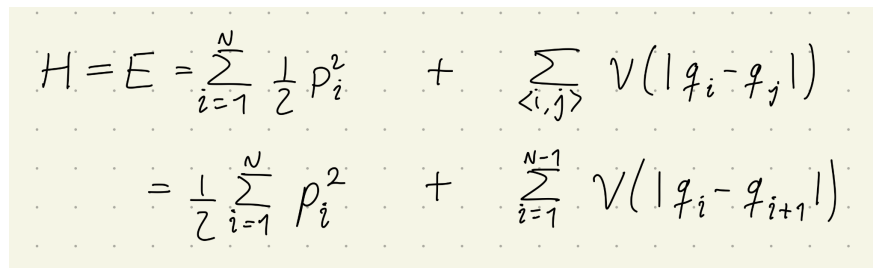 H = E = \sum_{i=1}^{N} \frac{1}{2} p_i^2 + \sum_{<i,j>} V(|q_i - q_j|)
= \frac{1}{2} \sum_{i=1}^{N} p_i^2 + \sum_{i=1}^{N-1} V(|q_i - q_{i+1}|)